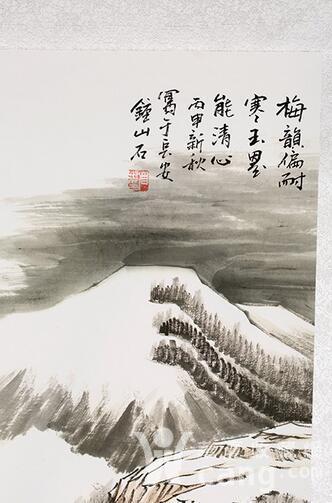 梅韻偏耐
寒玉墨
能清心
丙申新秋
寫于長安
鐘山石
cang.com